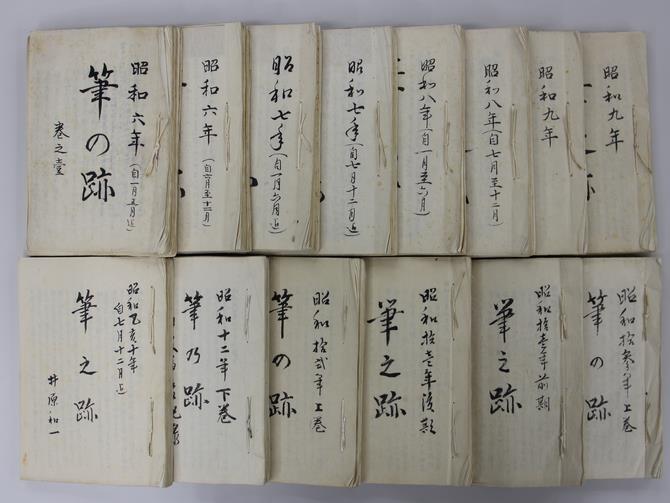 昭和六年(自一月至五月迄)
筆の跡
巻之壹
昭和六年(自六月至十二月)
昭和七年(自一月六月迄)
昭和七年(自七月十二月迄)
昭和八年(自一月至六月)
昭和八年(自七月至十二月)
昭和九年
昭和九年
昭和乙亥十年
自七月十二月迄
筆之跡
井原和一
昭和十二年下巻
筆乃跡
昭和拾弐年上巻
筆の跡
昭和拾壱年後期
筆之跡
昭和拾壱年前期
筆之跡
昭和拾参年上巻
筆の跡